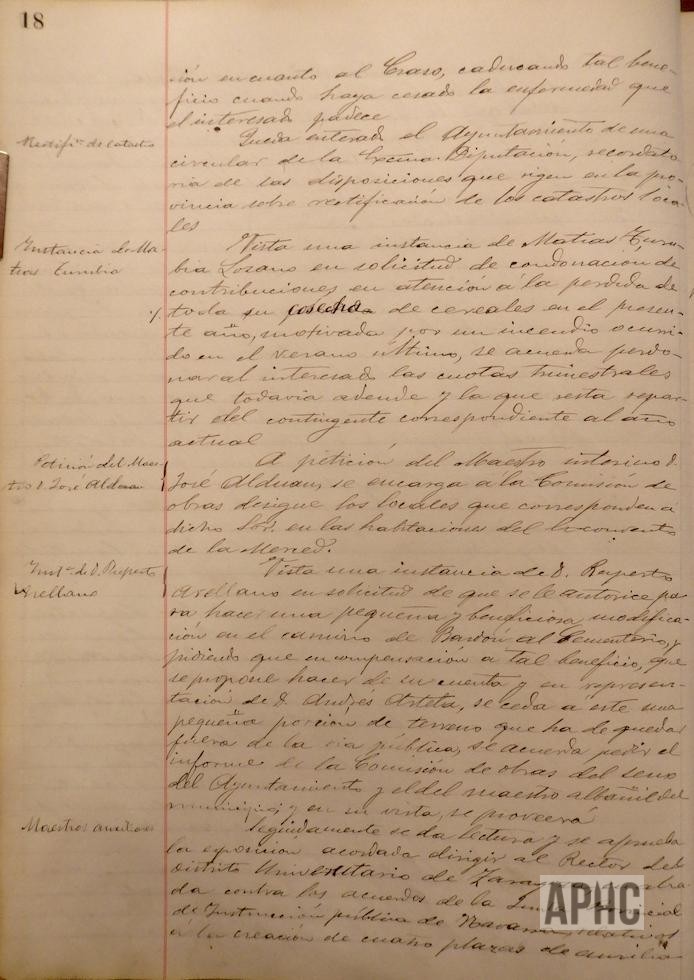 18
ción en cuanto al Craso, caducando tal bene-
ficio cuando haya cesado la enfermedad que
el interesado padece
Rectifn. de catastro
Queda enterado el Ayuntamiento de una
circular de la Excma. Diputación, recordato
ria de las disposiciones que rigen en la pro-
vincia sobre rectificación de los catastros loca-
les
Instancia de Ma-
tias Zurbia
Vista una instancia de Matias
Lozano en solicitud de condonación de
contribuciones en atención á la perdida de
toda su cosecha de cereales en el presen-
te año, motivada por un incendio ocurri-
do en el verano último, se acuerda perdo-
nar al interesado las cuotas trimestrales
que todavia adende y la que resta repar-
tir del contingente correspondiente al año
actual
Petición del Maes-
tro D. José Alduan
A petición del Maestro interino D.
José Alduan, se encarga a la Comision de
obras desigue los locales que corresponden a
dicho Sór. en las habitaciones del Exconvento
de la Merced.
Inst.a de D. Ruperto
Arellano
Vista una instancia de D. Ruperto
Arellano en solicitud de que se le autorice pa
ra hacer una pequeña y beneficiosa modifica-
ción en el camino de Bardón al Cementerio, y
pidiendo que en compensación a tal beneficio, que
se propone hacer de su cuenta y en represen-
tación de D. Andrés Arteta, se ceda a este una
pequeña porción de terreno que ha de quedar
fuera de la via pública, se acuerda pedir el
informe de la Comisión de obras del seno
del Ayuntamiento y el del maestro albañil del
municipio, y en su vista, se proveerá
Maestros auxiliares
Seguidamente se da lectura y se aprueba
la exposición acordada dirigir al Rector del
distrito Universitario de Zaragoza
da contra los acuerdos de la
de Instrucción pública de Navarra relativos
a la creación de cuatro plazas de auxilia
APHC